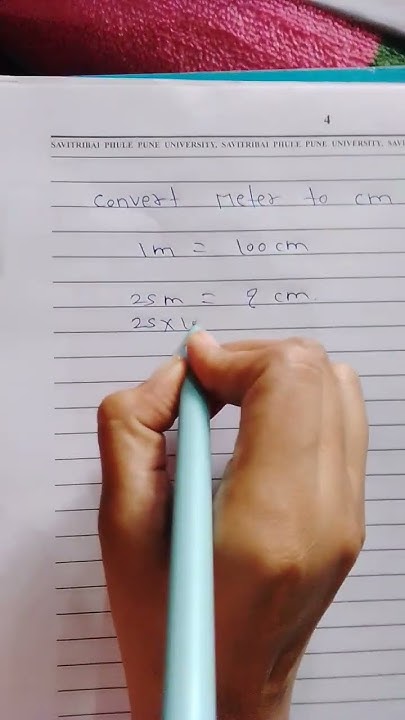 4
SAVITRIBAI PHULE PUNE UNIVERSITY, SAVITRIBAI PHULE PUNE UNIVERSITY, SAVI
Convert Meter to cm
1m = 100 cm
25 m = ? cm.
25 × 1